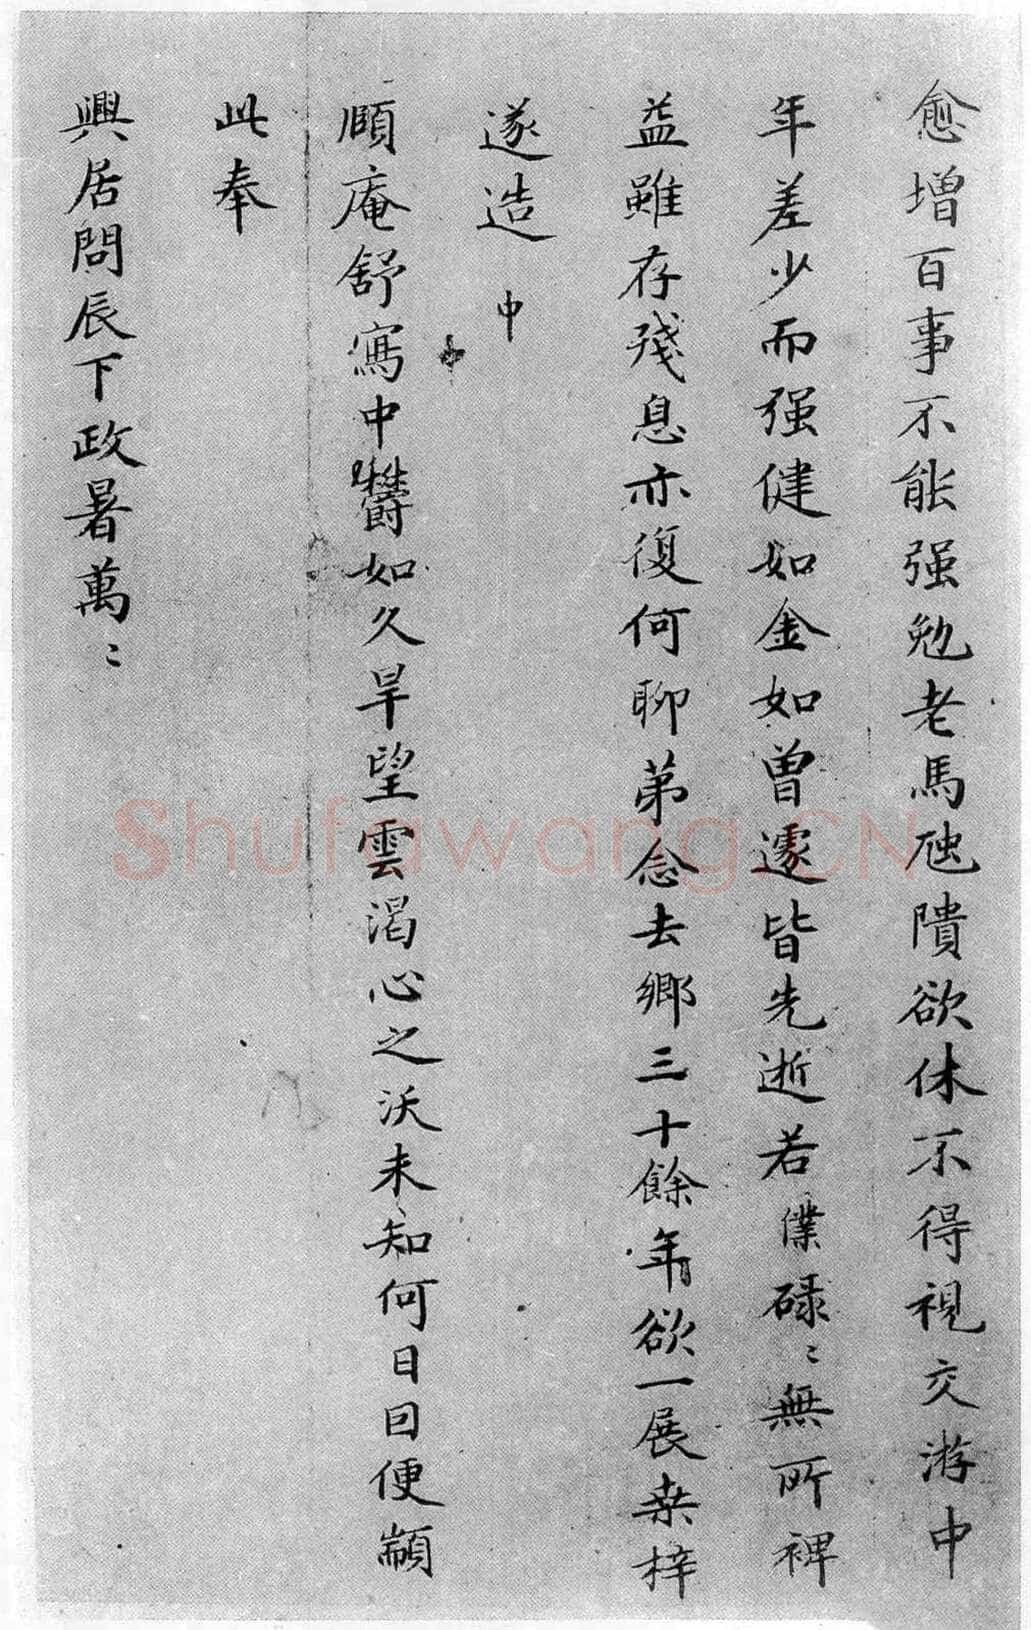 愈增百事不能强勉老馬虺隤欲休不得視交游中
年差少而强健如金如曾遽皆先逝若僕碌〻無所裨
益雖存殘息亦復何聊第念去鄉三十餘年欲一展桒梓
遂造
中
頤庵舒寫中欝如久旱望雲渴心之沃未知何日回便顓
此奉
興居問辰下政暑萬〻
Shufawang.CN